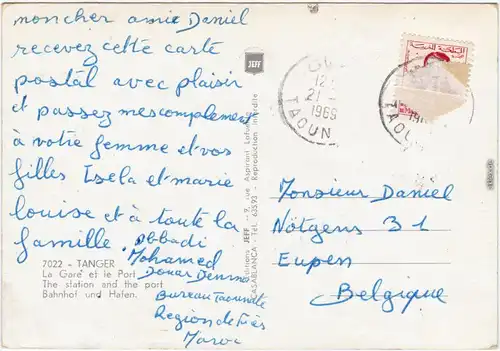 moncher amie Daniel
recevez cette carte
postal avec plaisir
et passez mescomplement
à votre femme et vos
filles Isela et marie
louise et à toute la
famille. Obbadi
Mohamed
Douar Demna
Bureau Taounate
Region de Fès
Maroc
7022 - TANGER
La Gare et le Port
The station and the port
Bahnhof und Hafen.
JEFF
Editions JEFF - 9, rue Aspirant Lafuente
CASABLANCA - Tél. 63593 - Reproduction Interdite
المملكة المغربية
12
21
1969
TAOUN
TAOU
Monsieur Daniel
Nötgens 31
Eupen
Belgique